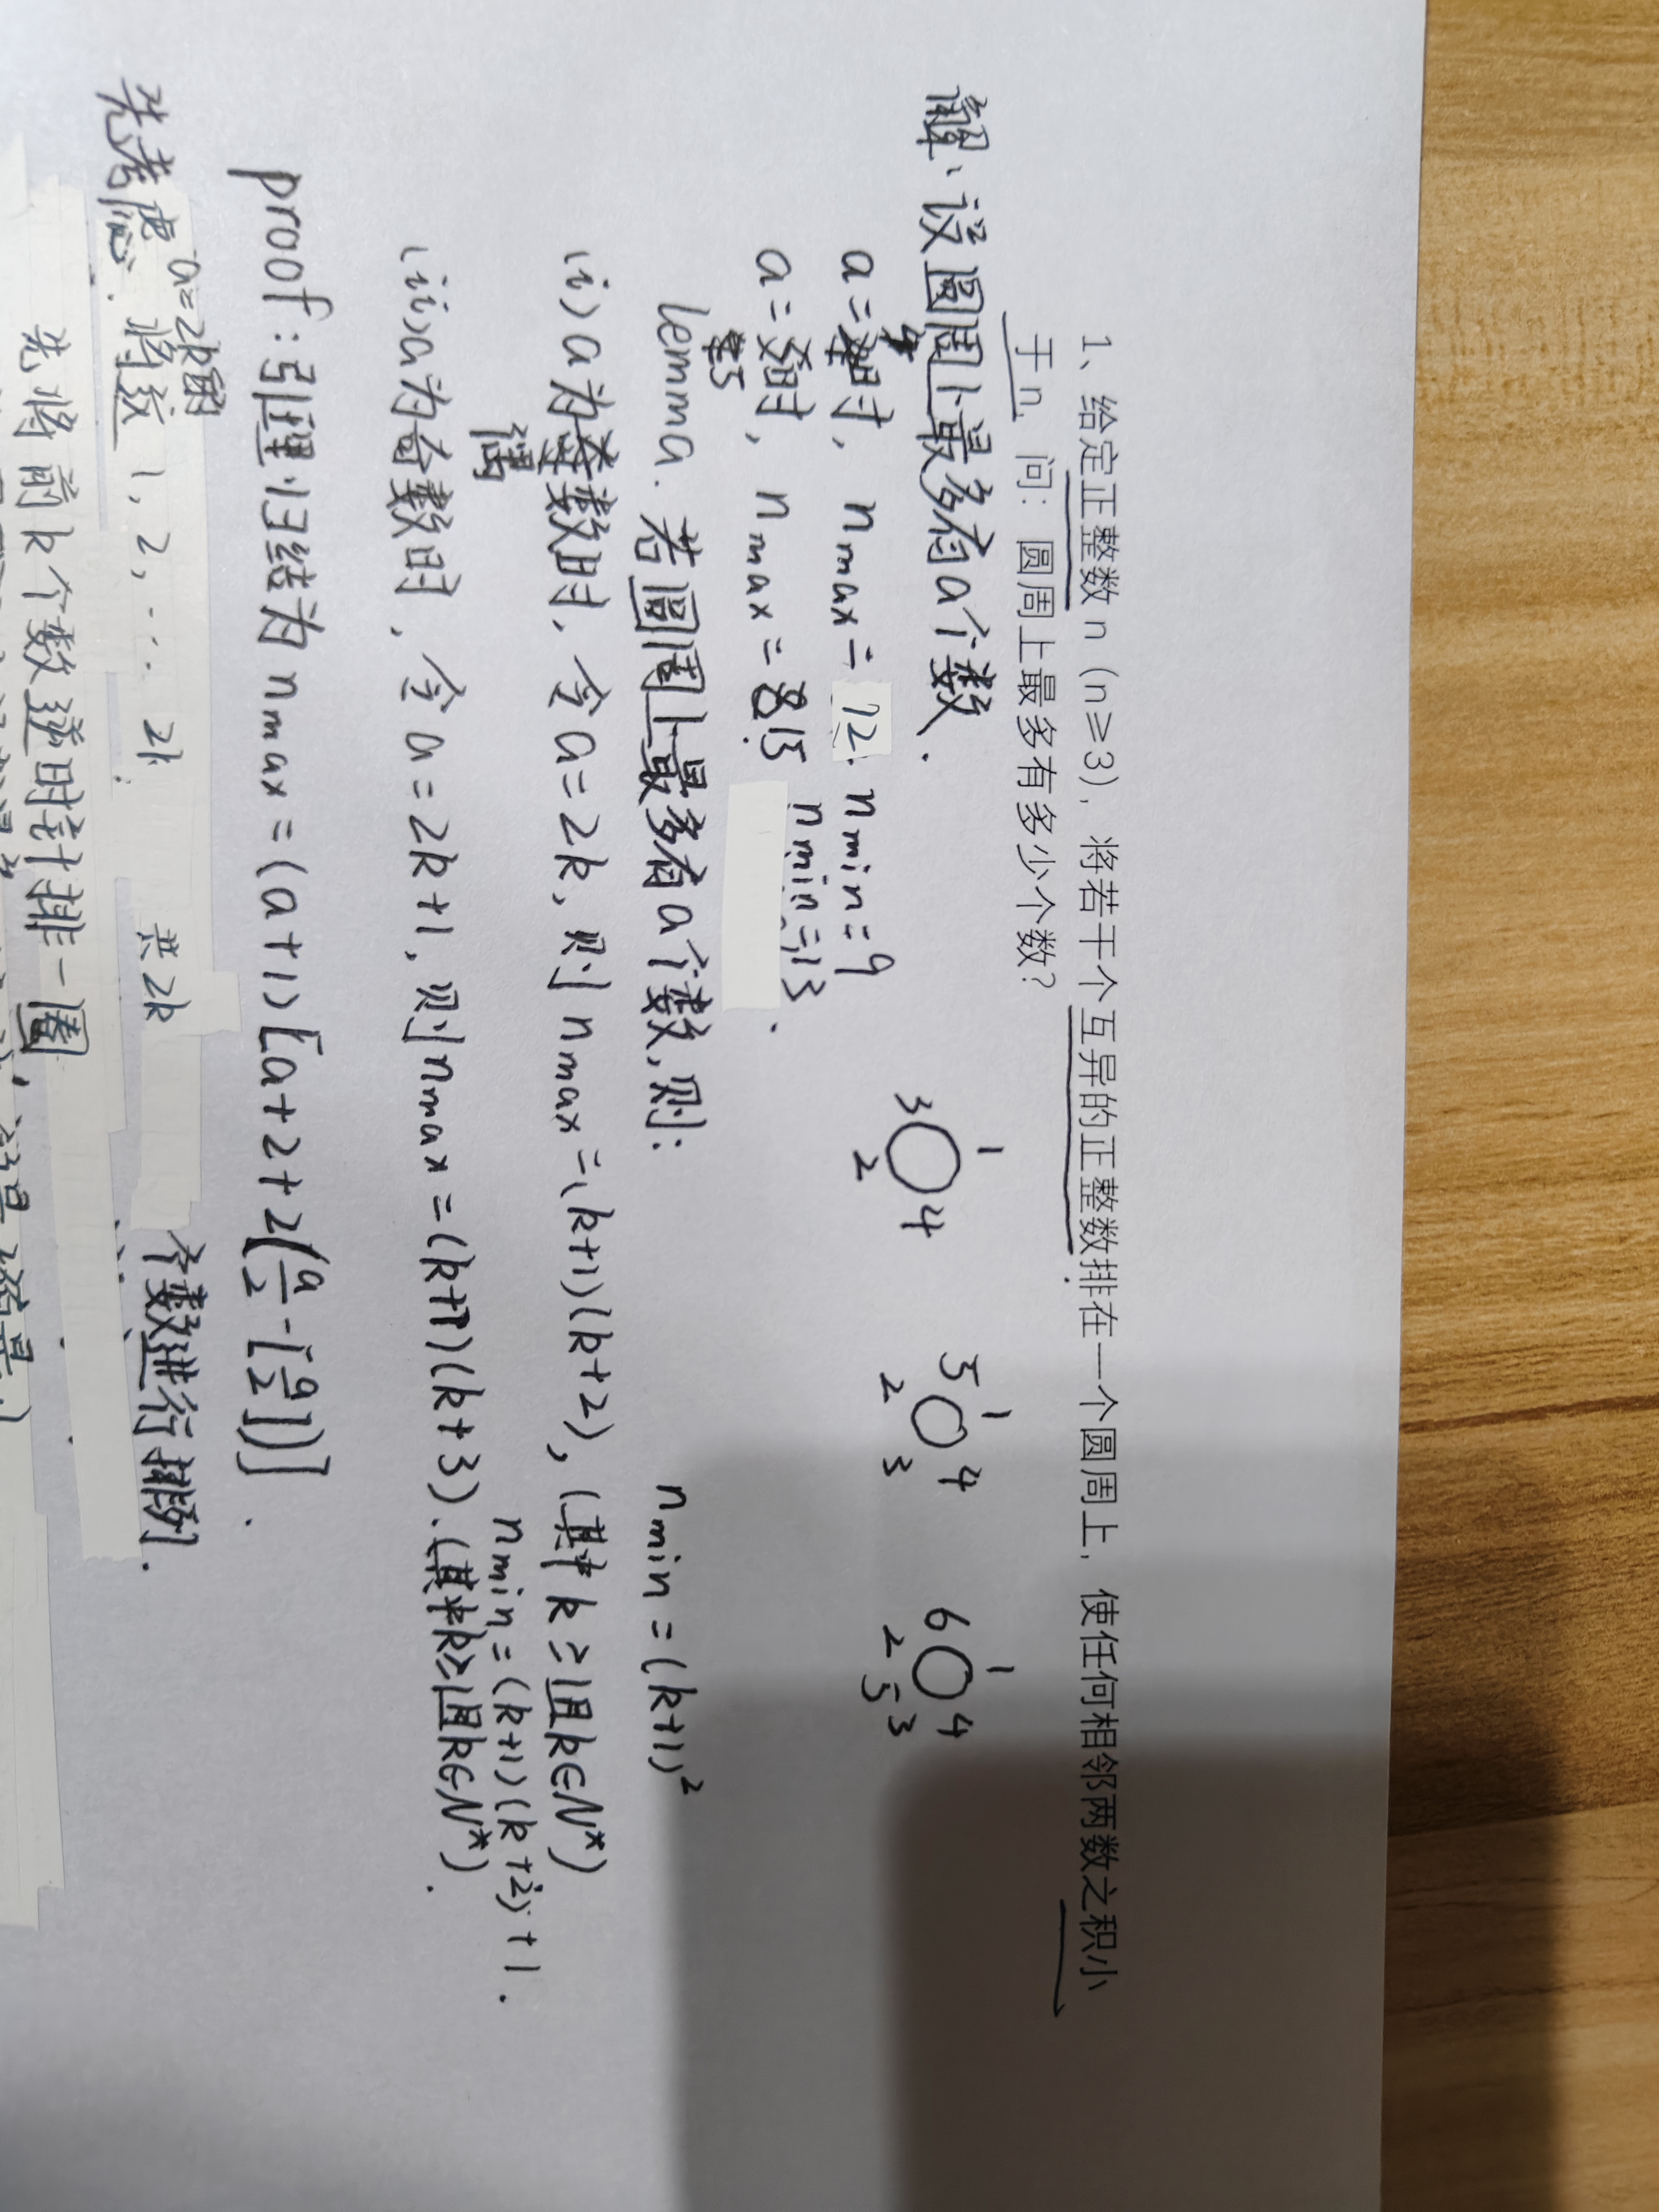 1、给定正整数 n（n≥3），将若干个互异的正整数排在一个圆周上，使任何相邻两数之积小
于 n，问：圆周上最多有多少个数？
解：设圆周上最多有a个数.
a=4时， n max = 12 n min = 9
a=5时， n max = 15 n min = 13.
1 3 4 2
1 5 4 2 3
1 6 4 2 3 5
lemma. 若圆周上最多有a个数,则:
n min = (k+1)²
(i) a为偶数时, 令a=2k, 则 n max = (k+1)(k+2), (其中k≥1且k∈N*)
n min = (k+1)(k+2)+1.
(ii) a为奇数时, 令a=2k+1, 则 n max = (k+1)(k+3). (其中k≥1且k∈N*).
proof: 引理归结为 n max = (a+1)[a+2+2(a/2-[a/2])].
a=2k
先考虑. 将数 1, 2, ... 2k 共2k 个数进行排列.
先将前k个数逆时针排一圈